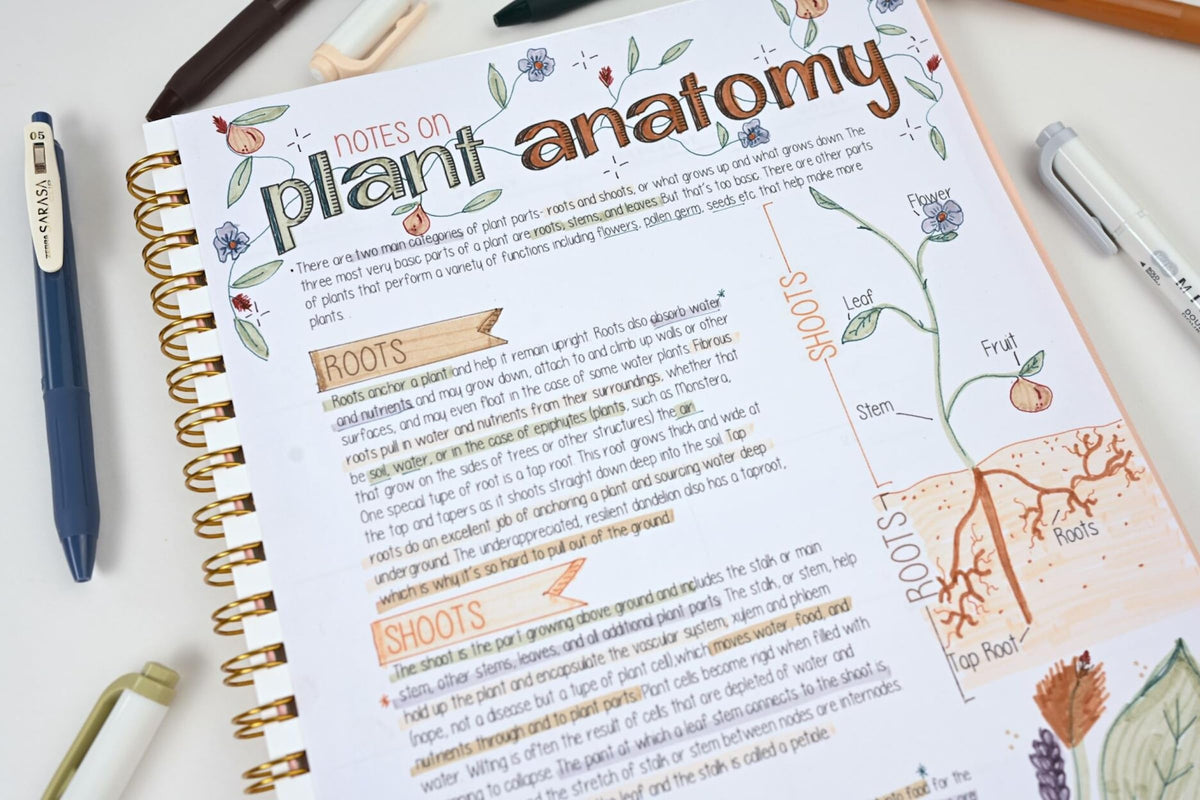 NOTES ON
plant anatomy
• There are two main categories of plant parts- roots and shoots, or what grows up and what grows down. The
three most very basic parts of a plant are roots, stems, and leaves. But that's too basic. There are other parts
of plants that perform a variety of functions including flowers, pollen germ, seeds etc. that help make more
plants.
ROOTS
Roots anchor a plant and help it remain upright. Roots also absorb water*
and nutrients and may grow down, attach to and climb up walls or other
surfaces, and may even float in the case of some water plants. Fibrous
roots pull in water and nutrients from their surroundings, whether that
be soil, water, or in the case of epiphytes (plants, such as Monstera,
that grow on the sides of trees or other structures) the air.
One special type of root is a tap root. This root grows thick and wide at
the top and tapers as it shoots straight down deep into the soil. Tap
roots do an excellent job of anchoring a plant and sourcing water deep
underground. The underappreciated, resilient dandelion also has a taproot,
which is why it's so hard to pull out of the ground.
SHOOTS
The shoot is the part growing above ground and includes the stalk or main
stem, other stems, leaves, and all additional plant parts. The stalk, or stem, help
* hold up the plant and encapsulate the vascular system, xylem and phloem
(nope, not a disease but a type of plant cell), which moves water, food, and
nutrients through and to plant parts. Plant cells become rigid when filled with
water. Wilting is often the result of cells that are depleted of water and
to collapse. The point at which a leaf stem connects to the shoot is
and the stretch of stalk or stem between nodes are internodes.
leaf and the stalk is called a petiole.
food for the
SHOOTS
Flower
Leaf
Fruit
Stem
ROOTS
Roots
Tap Root
05
ZEBRA SARASA